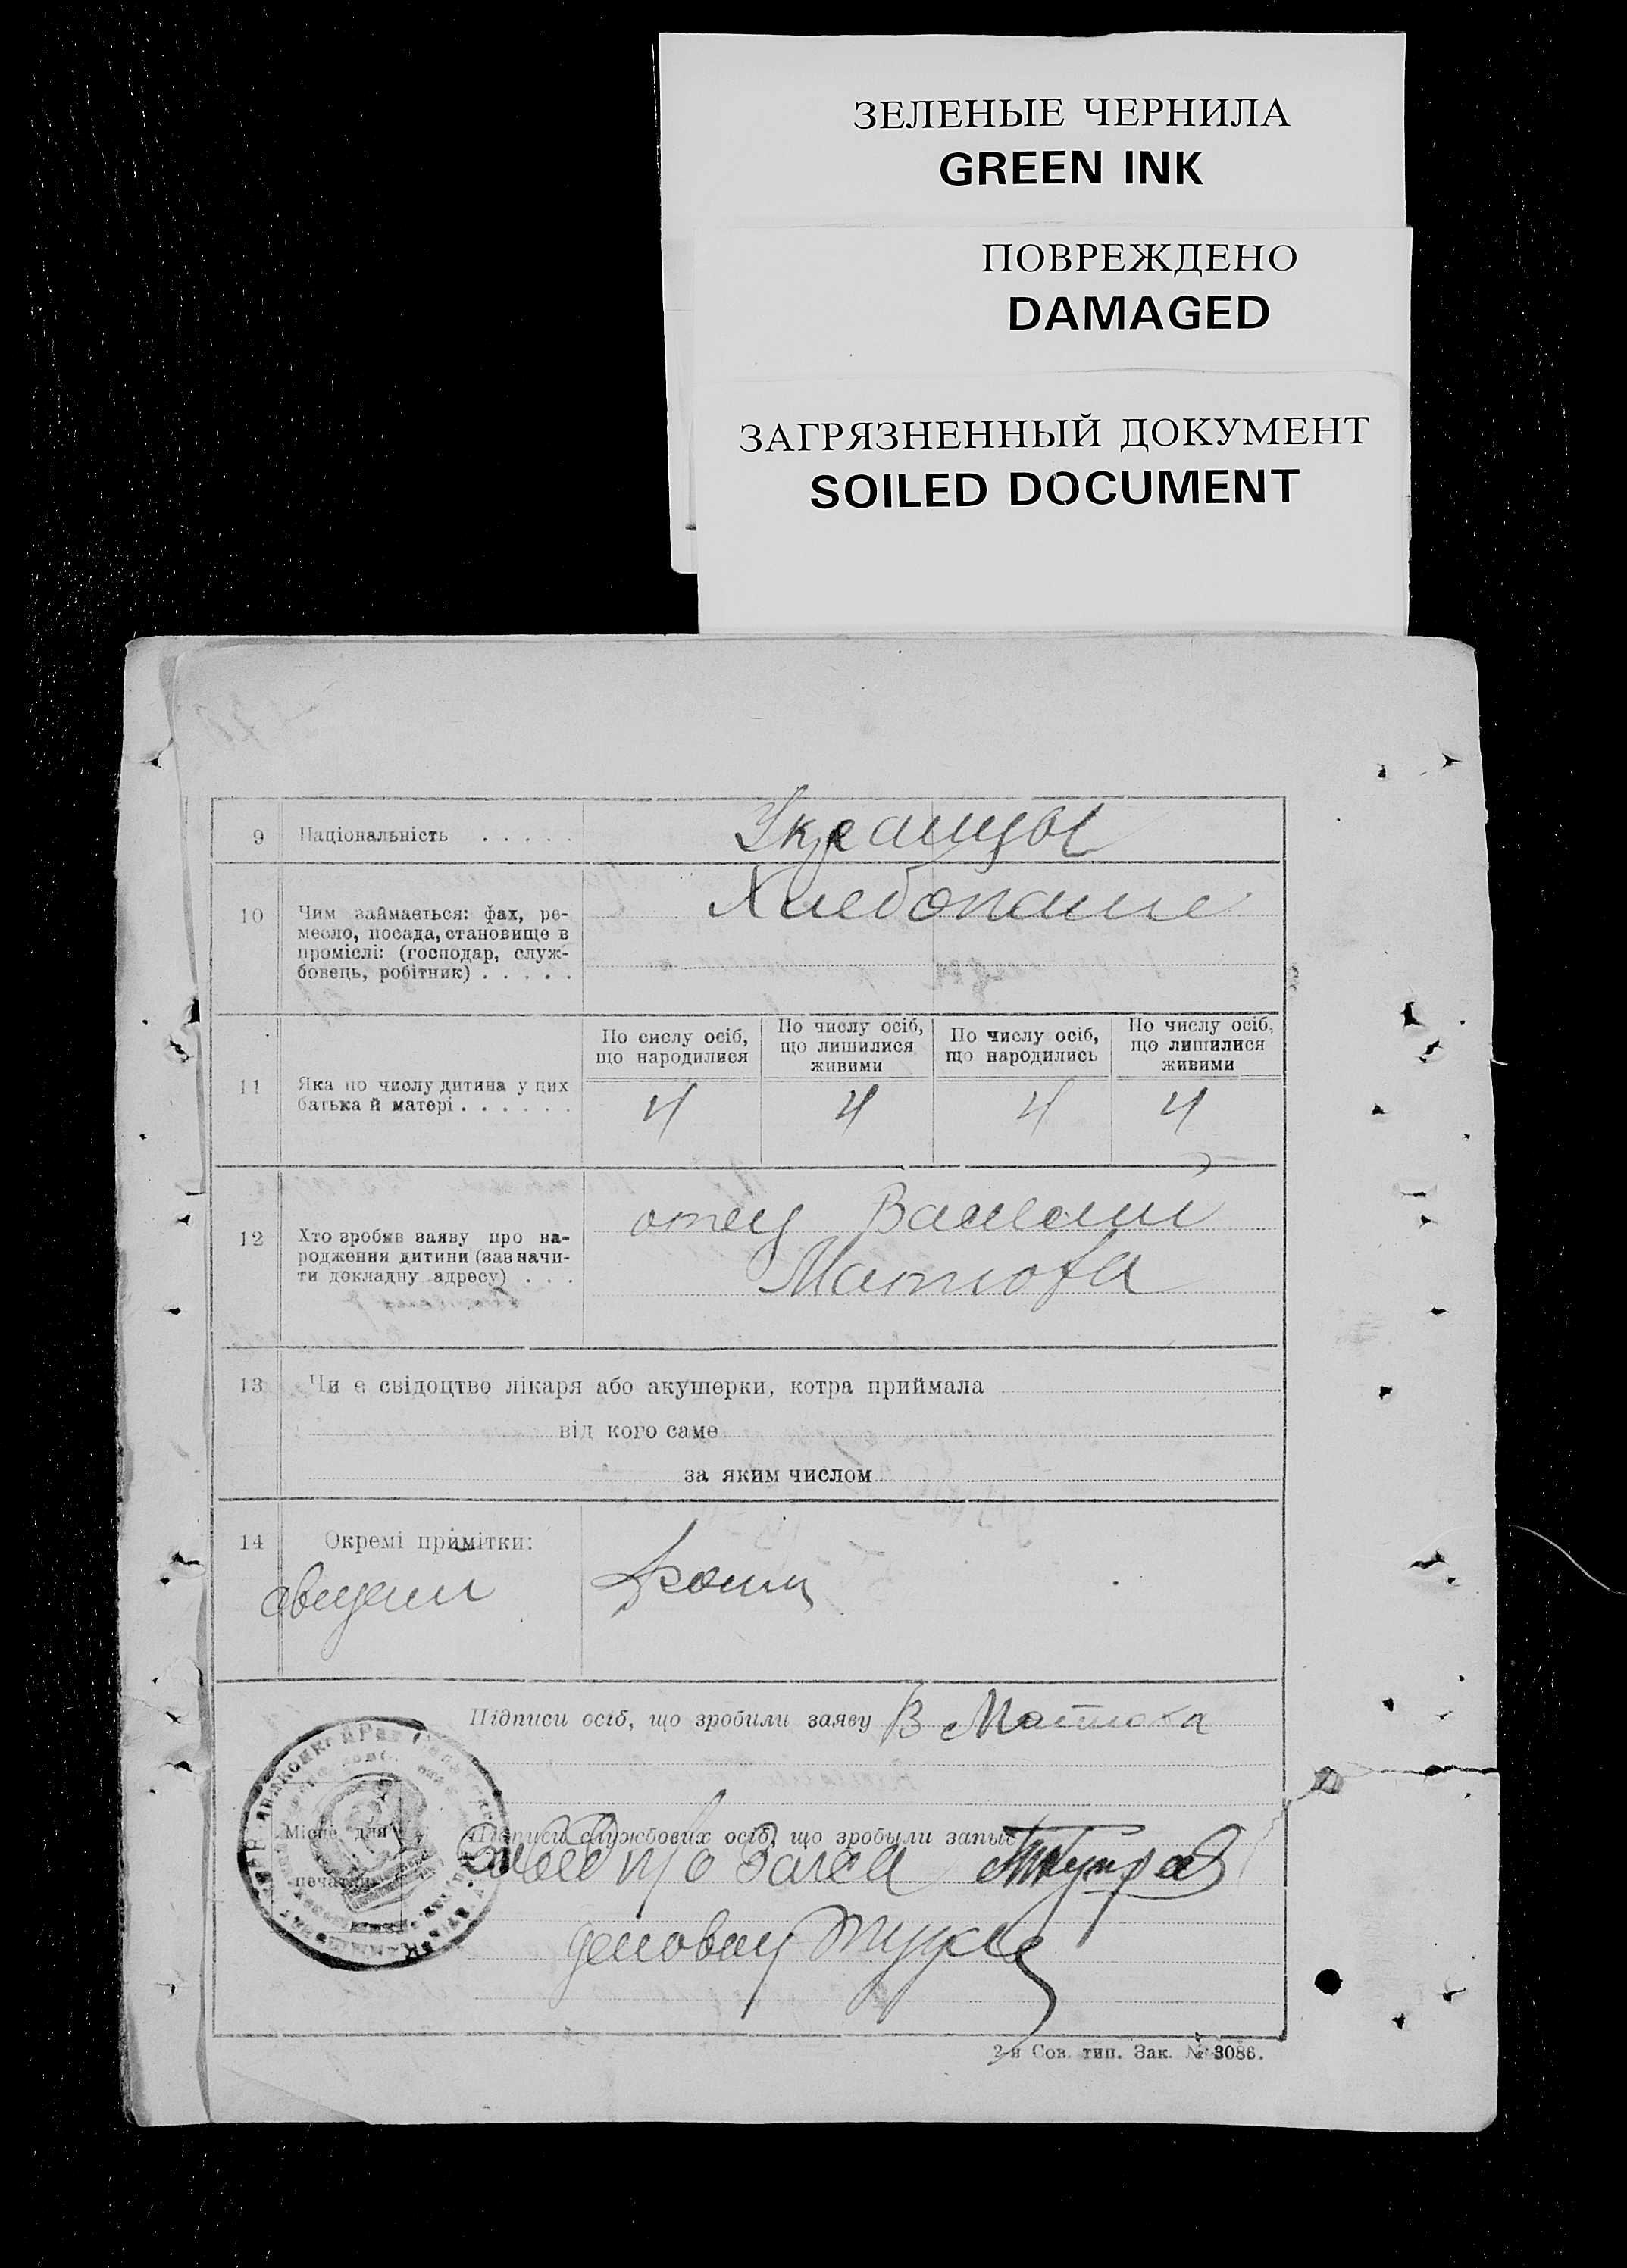 ЗЕЛЕНЫЕ ЧЕРНИЛА
GREEN INK
ПОВРЕЖДЕНО
DAMAGED
ЗАГРЯЗНЕННЫЙ ДОКУМЕНТ
SOILED DOCUMENT
9 Національність . . . . .
Украинцы
10 Чим займається: фах, ре-
месло, посада, становище в
промісли: (господар, служ-
бовець, робітник) . . . . .
Хлебопаше
11 Яка по числу дитина у цих
батька й матері . . . . . .
По сислу осіб,
що народилися
По числу осіб,
що лишилися
живими
По числу осіб,
що народились
По числу осіб,
що лишилися
живими
4 4 4 4
12 Хто зробив заяву про на-
родження дитини (зазначи-
ти докладну адресу) . . .
отец Василий
Матюха
13 Чи є свідоцтво лікаря або акушерки, котра приймала
від кого саме
за яким числом
14 Окремі примітки:
Підписи осіб, що зробили заяву В Матюха
Місце для
печатки
Підписи службових осіб, що зробыли запыс
Завед п/о Загса
деловод
2-я Сов. тип. Зак. № 3086.